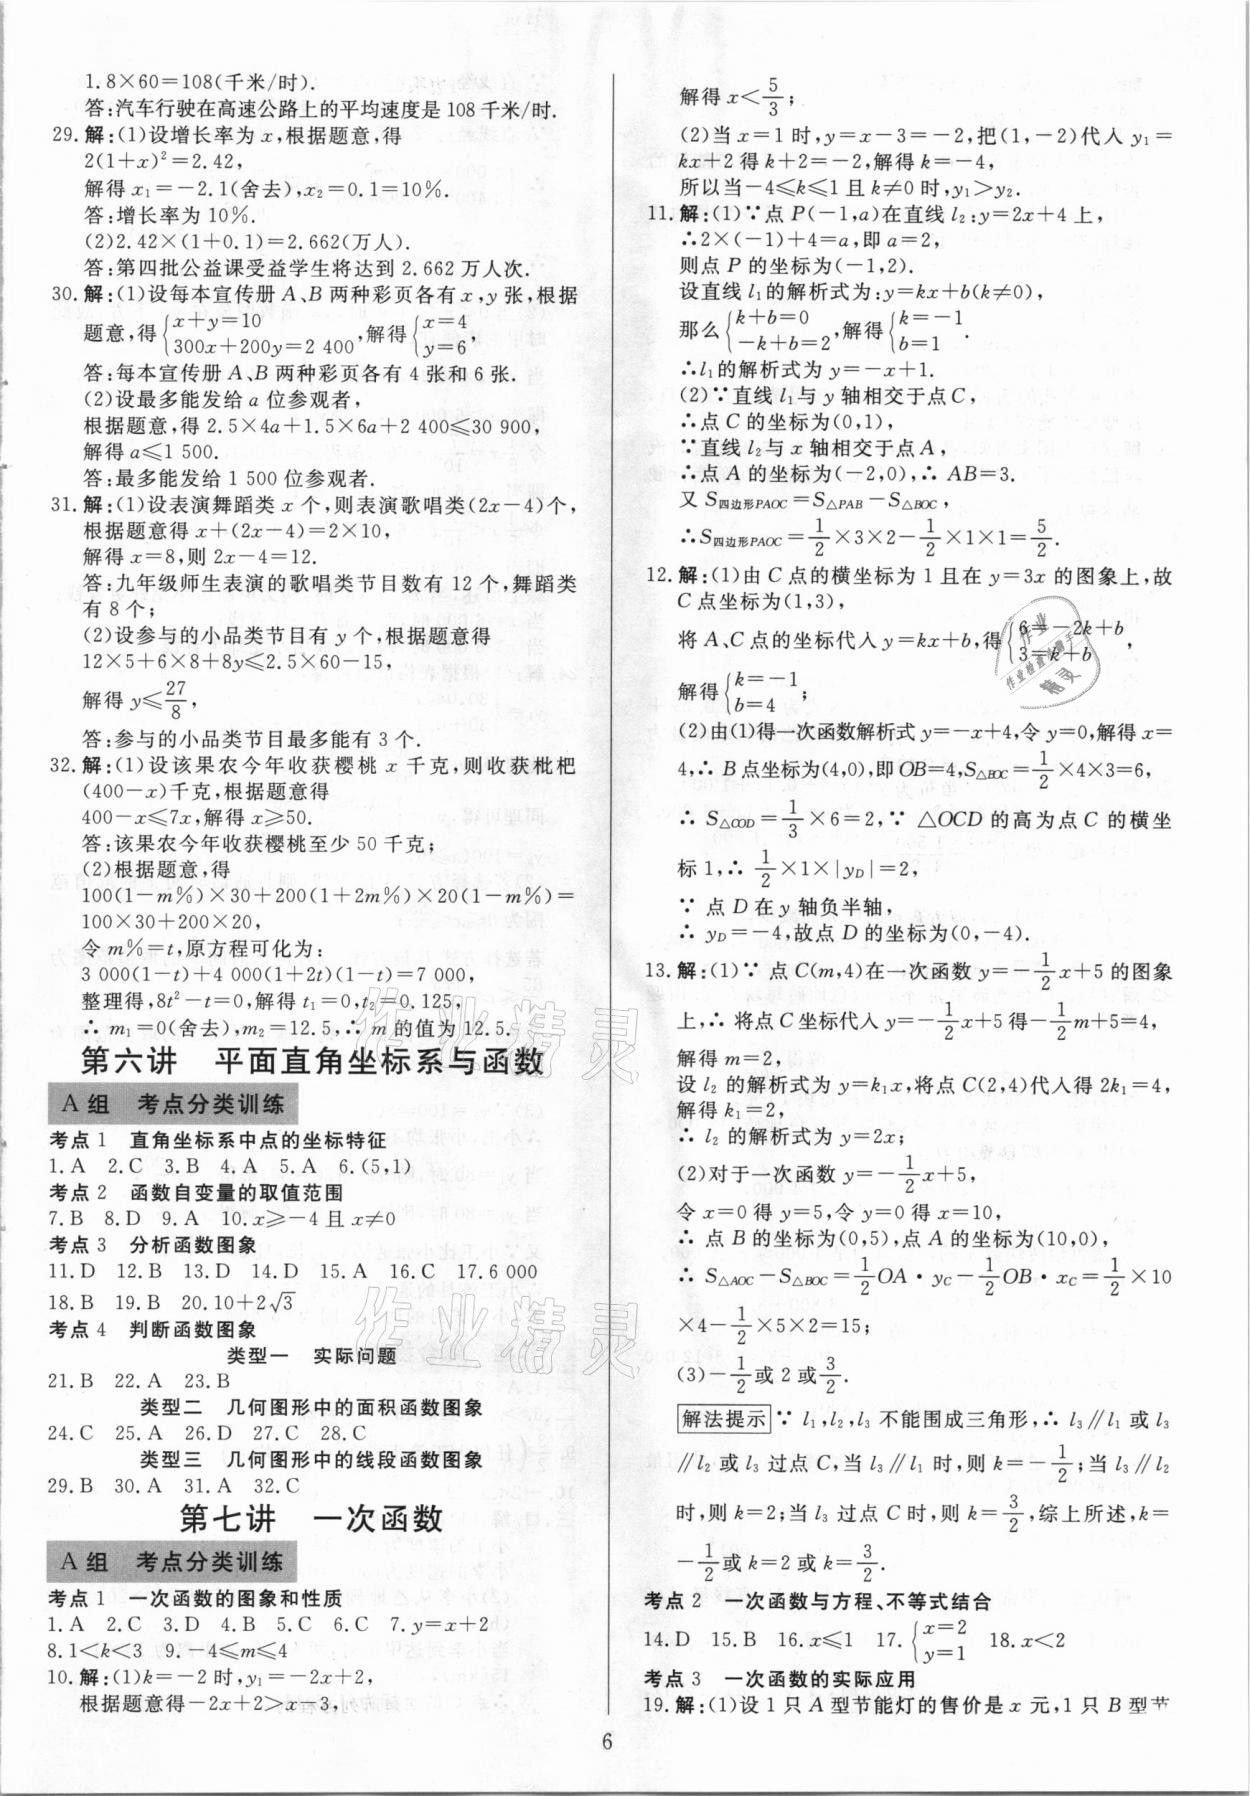 1.8×60=108(千米/时).
答:汽车行驶在高速公路上的平均速度是108千米/时.
29.解:(1)设增长率为x,根据题意,得
2(1+x)²=2.42,
解得x₁=-2.1(舍去),x₂=0.1=10%.
答:增长率为10%.
(2)2.42×(1+0.1)=2.662(万人).
答:第四批公益课受益学生将达到2.662万人次.
30.解:(1)设每本宣传册A、B两种彩页各有x,y张,根据
题意,得{x+y=10 300x+200y=2 400,解得{x=4 y=6,
答:每本宣传册A、B两种彩页各有4张和6张.
(2)设最多能发给a位参观者,
根据题意,得2.5×4a+1.5×6a+2 400≤30 900,
解得a≤1 500.
答:最多能发给1 500位参观者.
31.解:(1)设表演舞蹈类x个,则表演歌唱类(2x-4)个,
根据题意得x+(2x-4)=2×10,
解得x=8,则2x-4=12.
答:九年级师生表演的歌唱类节目数有12个,舞蹈类
有8个;
(2)设参与的小品类节目有y个,根据题意得
12×5+6×8+8y≤2.5×60-15,
解得y≤27/8,
答:参与的小品类节目最多能有3个.
32.解:(1)设该果农今年收获樱桃x千克,则收获枇杷
(400-x)千克,根据题意得
400-x≤7x,解得x≥50.
答:该果农今年收获樱桃至少50千克;
(2)根据题意,得
100(1-m%)×30+200(1+2m%)×20(1-m%)=
100×30+200×20,
令m%=t,原方程可化为:
3 000(1-t)+4 000(1+2t)(1-t)=7 000,
整理得,8t²-t=0,解得t₁=0,t₂=0.125,
∴m₁=0(舍去),m₂=12.5,∴m的值为12.5.
第六讲 平面直角坐标系与函数
A组 考点分类训练
考点1 直角坐标系中点的坐标特征
1.A 2.C 3.B 4.A 5.A 6.(5,1)
考点2 函数自变量的取值范围
7.B 8.D 9.A 10.x≥-4且x≠0
考点3 分析函数图象
11.D 12.B 13.D 14.D 15.A 16.C 17.6 000
18.B 19.B 20.10+2√3
考点4 判断函数图象
类型一 实际问题
21.B 22.A 23.B
类型二 几何图形中的面积函数图象
24.C 25.A 26.D 27.C 28.C
类型三 几何图形中的线段函数图象
29.B 30.A 31.A 32.C
第七讲 一次函数
A组 考点分类训练
考点1 一次函数的图象和性质
1.A 2.C 3.D 4.B 5.C 6.C 7.y=x+2
8.1<k<3 9.-4≤m≤4
10.解:(1)k=-2时,y₁=-2x+2,
根据题意得-2x+2>x-3,
解得x<5/3;
(2)当x=1时,y=x-3=-2,把(1,-2)代入y₁=
kx+2得k+2=-2,解得k=-4,
所以当-4≤k≤1且k≠0时,y₁>y₂.
11.解:(1)∵点P(-1,a)在直线l₂:y=2x+4上,
∴2×(-1)+4=a,即a=2,
则点P的坐标为(-1,2).
设直线l₁的解析式为:y=kx+b(k≠0),
那么{k+b=0 -k+b=2,解得{k=-1 b=1.
∴l₁的解析式为y=-x+1.
(2)∵直线l₁与y轴相交于点C,
∴点C的坐标为(0,1).
∵直线l₂与x轴相交于点A,
∴点A的坐标为(-2,0),∴AB=3.
又S四边形PAOC=S△PAB-S△BOC,
∴S四边形PAOC=1/2×3×2-1/2×1×1=5/2.
12.解:(1)由C点的横坐标为1且在y=3x的图象上,故
C点坐标为(1,3),
将A、C点的坐标代入y=kx+b,得{6=-2k+b 3=k+b,
解得{k=-1 b=4;
(2)由(1)得一次函数解析式y=-x+4,令y=0,解得x=
4,∴B点坐标为(4,0),即OB=4,S△BOC=1/2×4×3=6,
∴S△COD=1/3×6=2,∵△OCD的高为点C的横坐
标1,∴1/2×1×|yD|=2,
∵点D在y轴负半轴,
∴yD=-4,故点D的坐标为(0,-4).
13.解:(1)∵点C(m,4)在一次函数y=-1/2x+5的图象
上,∴将点C坐标代入y=-1/2x+5得-1/2m+5=4,
解得m=2,
设l₂的解析式为y=k₁x,将点C(2,4)代入得2k₁=4,
解得k₁=2,
∴l₂的解析式为y=2x;
(2)对于一次函数y=-1/2x+5,
令x=0得y=5,令y=0得x=10,
∴点B的坐标为(0,5),点A的坐标为(10,0),
∴S△AOC-S△BOC=1/2OA·yC-1/2OB·xC=1/2×10
×4-1/2×5×2=15;
(3)-1/2或2或3/2.
解法提示∵l₁,l₂,l₃不能围成三角形,∴l₃∥l₁或l₃
∥l₂或l₃过点C,当l₃∥l₁时,则k=-1/2;当l₃∥l₂
时,则k=2;当l₃过点C时,则k=3/2,综上所述,k=
-1/2或k=2或k=3/2.
考点2 一次函数与方程、不等式结合
14.D 15.B 16.x≤1 17.{x=2 y=1 18.x<2
考点3 一次函数的实际应用
19.解:(1)设1只A型节能灯的售价是x元,1只B型节
6
作业精灵
作业精灵
作业
作业检查小助手
精灵